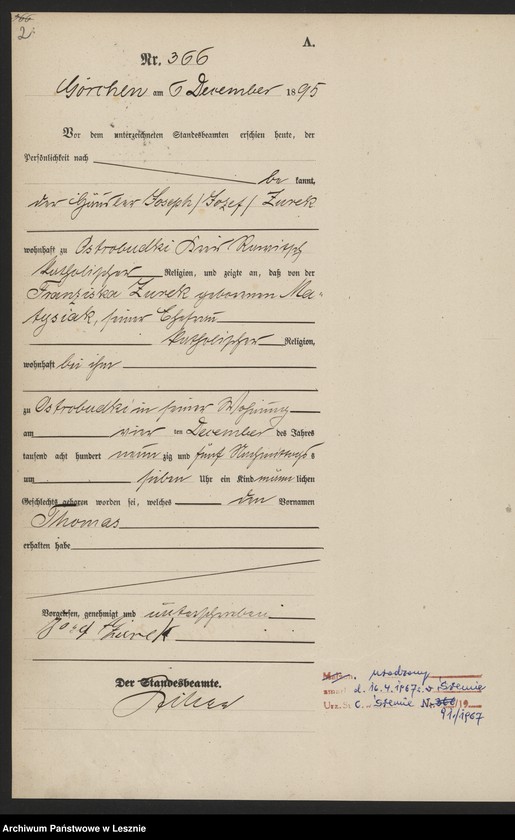 366
2
A.
Nr. 366
Görchen am 6 December 1895
Vor dem unterzeichneten Standesbeamten erschien heute, der
Persönlichkeit nach
be kannt,
der Häusler Joseph /Jozef/ Zurek
wohnhaft zu Ostrobudki Kreis Rawitsch
katholischer Religion, und zeigte an, daß von der
Franziska Zurek geborenen Ma-
tysiak, seiner Ehefrau
katholischer Religion,
wohnhaft bei ihm
zu Ostrobudki in seiner Wohnung
am vier ten December des Jahres
tausend acht hundert neun zig und fünf Nachmittags
um sieben Uhr ein Kind männ lichen
Geschlechts geboren worden sei, welches den Vornamen
Thomas
erhalten habe
Vorgelesen, genehmigt und unterschrieben
Józef Żurek
Der Standesbeamte.
urodzony
zmarł d. 16.4.1967 r. w
Urz. St. C. Nr. 366/19
91/1967
Archiwum Państwowe w Lesznie